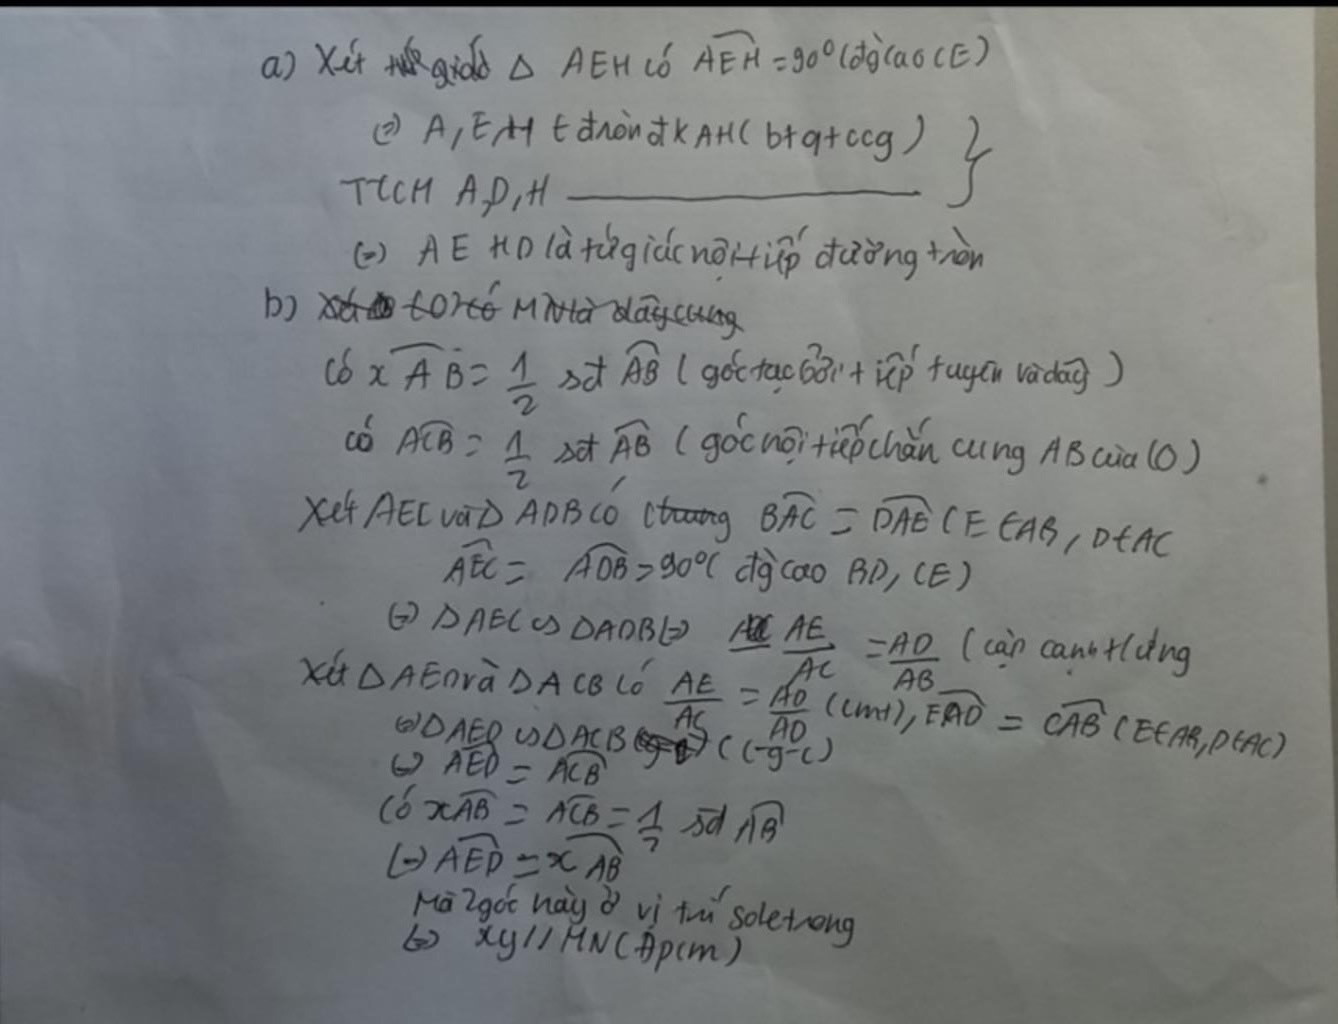 a) Xét Δ AEH có AEH = 90° (đg cao CE)
(=) A, E, H ∈ đ tròn đk AH ( bt q+ccg )
TTCM A, D, H ————
(=) A E H D là tứ giác nội tiếp đường tròn
b) (O) có MN là dây cung
Có xAB = 1/2 sđ AB ( góc tạc bởi tiếp tuyến và dây )
có ACB = 1/2 sđ AB ( góc nội tiếp chắn cung AB của (O)
Xét AEC và Δ ADB có chung BAC = DAE ( E ∈ AB, D ∈ AC
AEC = ADB = 90° ( đg cao BD, CE )
(=) Δ AEC ∽ Δ ADB (=) AE/AC = AD/AB ( cặp cạnh t/ứng
Xét Δ AED và Δ ACB có AE/AC = AD/AD (cmt), EAD = CAB ( E ∈ AB, D ∈ AC)
(=) Δ AED ∽ Δ ACB ( c-g-c )
(=) AED = ACB
Có xAB = ACB = 1/2 sđ AB
(=) AED = xAB
Mà 2 góc này ở vị trí sole trong
(=) xy // MN ( Đpcm )